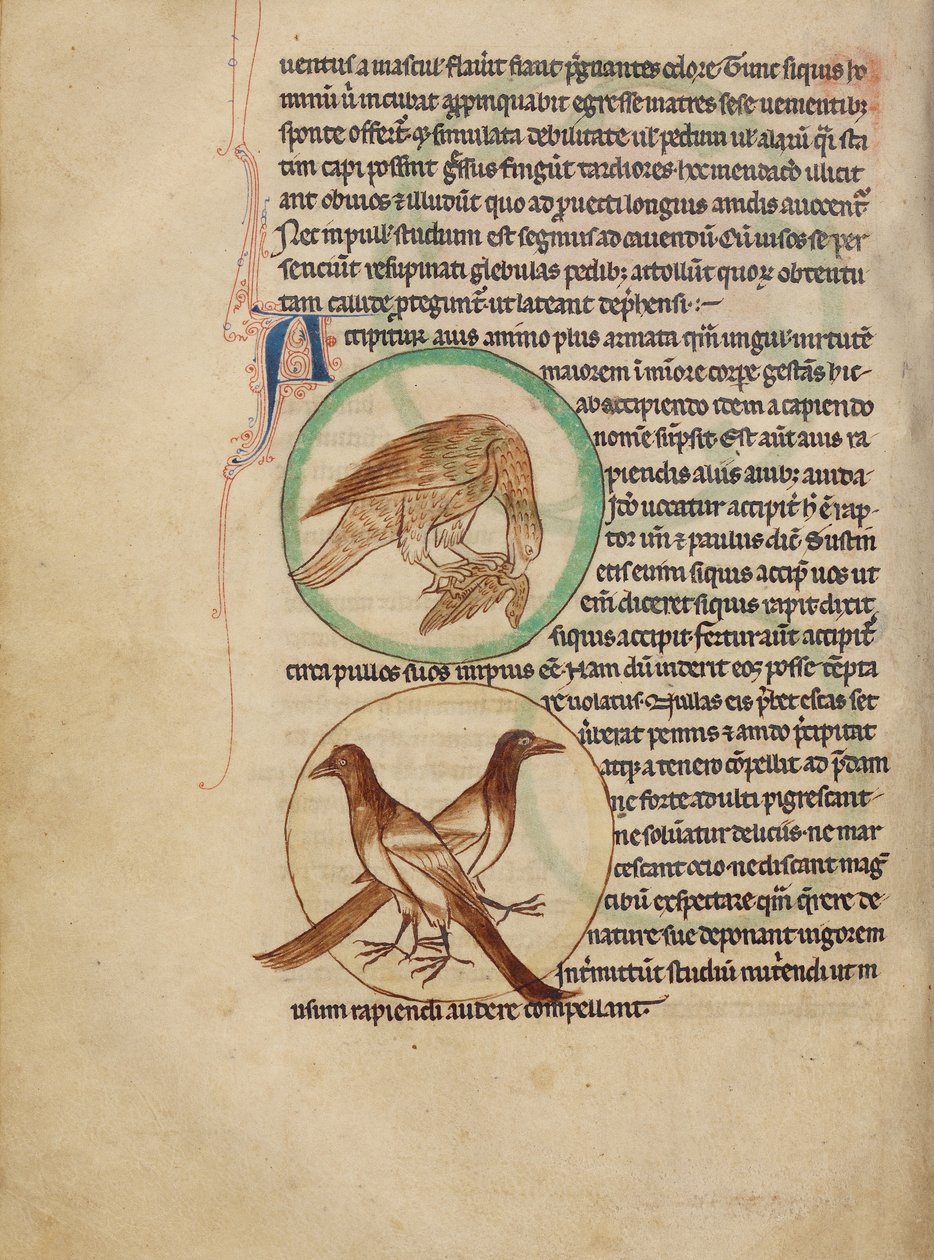 uentus a mascul' flau'it fiant p̄gnantes odore Tunc siquis ho
minū ū incubat ꝓpinquabit egresse matres sese uenientibꝫ
sponte offerūt ⁊ simulata debilitate ul' pedum ul' alarū q̄si sta
tim capi possint g̃ssus fingūt tardiores · hoc mendatio illicit
ant obuios ⁊ illudūt quo ad ꝓuecti longius a nidis auocent᷑
Nec in pull' studium est segnius ad cauendū · Cū uisos se per
senciūt resupinati glebulas pedibꝫ attollūt quoꝝ obtentu
tam callide ꝓteguntᷣ · ut lateant dep̄hensi ·:~
Accipiter auis animo plus armata q̄m ungul' uirtutē
maiorem ī miōre corꝑe gestās hic
ab accipiendo idem a capiendo
nomē sūpsit · Est aūt auis ra
piendis aliis auibꝫ auida ·
Ido uocatur accipit᷑ h̄ ē rap
tor un̄ ⁊ paulus dic̄ · Sustin
etis enim siquis accip̄ uos ut
em̄ diceret siquis rapit · dixit
siquis accipit · fertur aūt accipit᷑
circa pullos suos impius eē · Nam dū uiderit eos posse tēpta
re uolatus · Nullas eis p̄bet escas set
ūberat pennis ⁊ a nido p̄cipitat
atqꝫ a tenero cōpellit ad p̄dam
ne forte adulti pigrescant ·
ne soluatur deliciis · ne mar
cescant ocio · ne discant mag̃
cibū exspectare q̄m q̄rere de
nature sue deponant uigorem
Int᷑mittūt studiū nut᷑endi ut in
usum rapiendi audere compellant ·